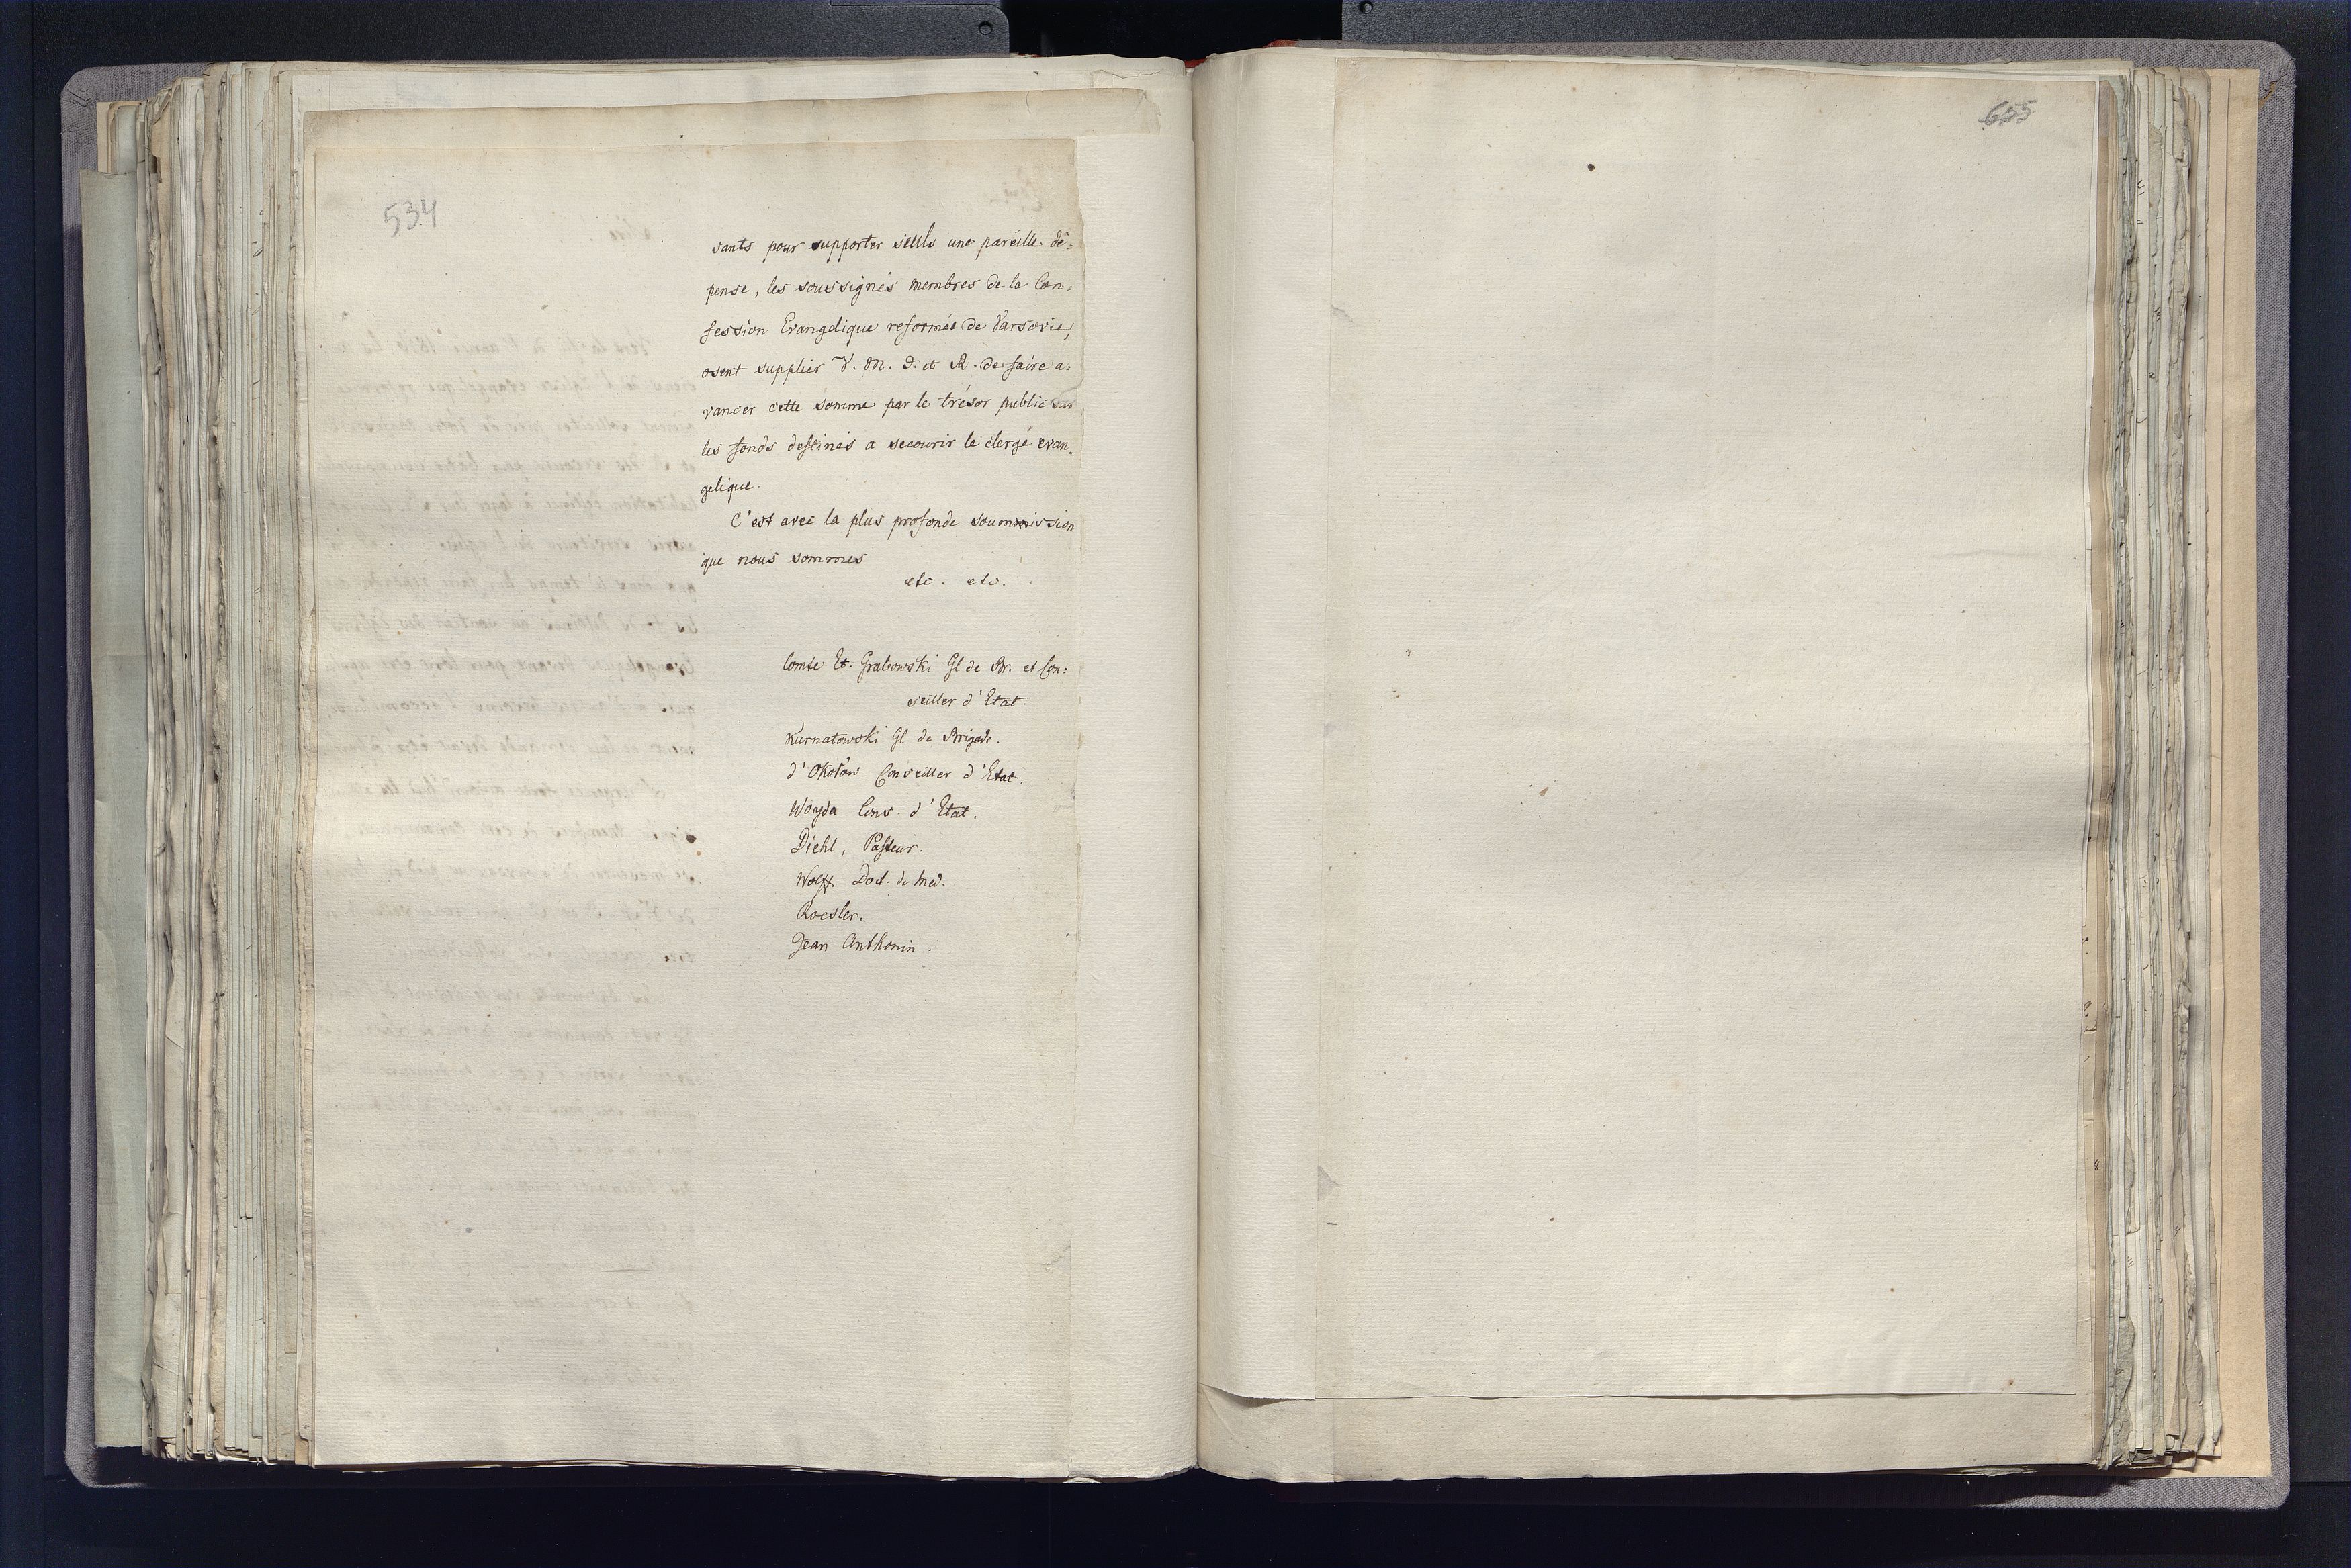 534
sants pour supporter seuls une pareille dé=
pense, les soussignés membres de la Con=
fession Evangelique reformée de Varsovie,
osent supplier V. M. I. et R. de faire a=
vancer cette somme par le trésor public sur
les fonds destinés a secourir le clergé evan=
gelique.
C'est avec la plus profonde soummission
que nous sommes
etc. etc.
Comte Et. Grabowski Gl de Br. et Con=
seiller d'Etat.
Kurnatowski Gl de Brigade.
d'Okołow Conseiller d'Etat.
Woyda Cons. d'Etat.
Diehl, Pasteur.
Wolff Doct. de Med.
Roesler.
Jean Anthonin.
655